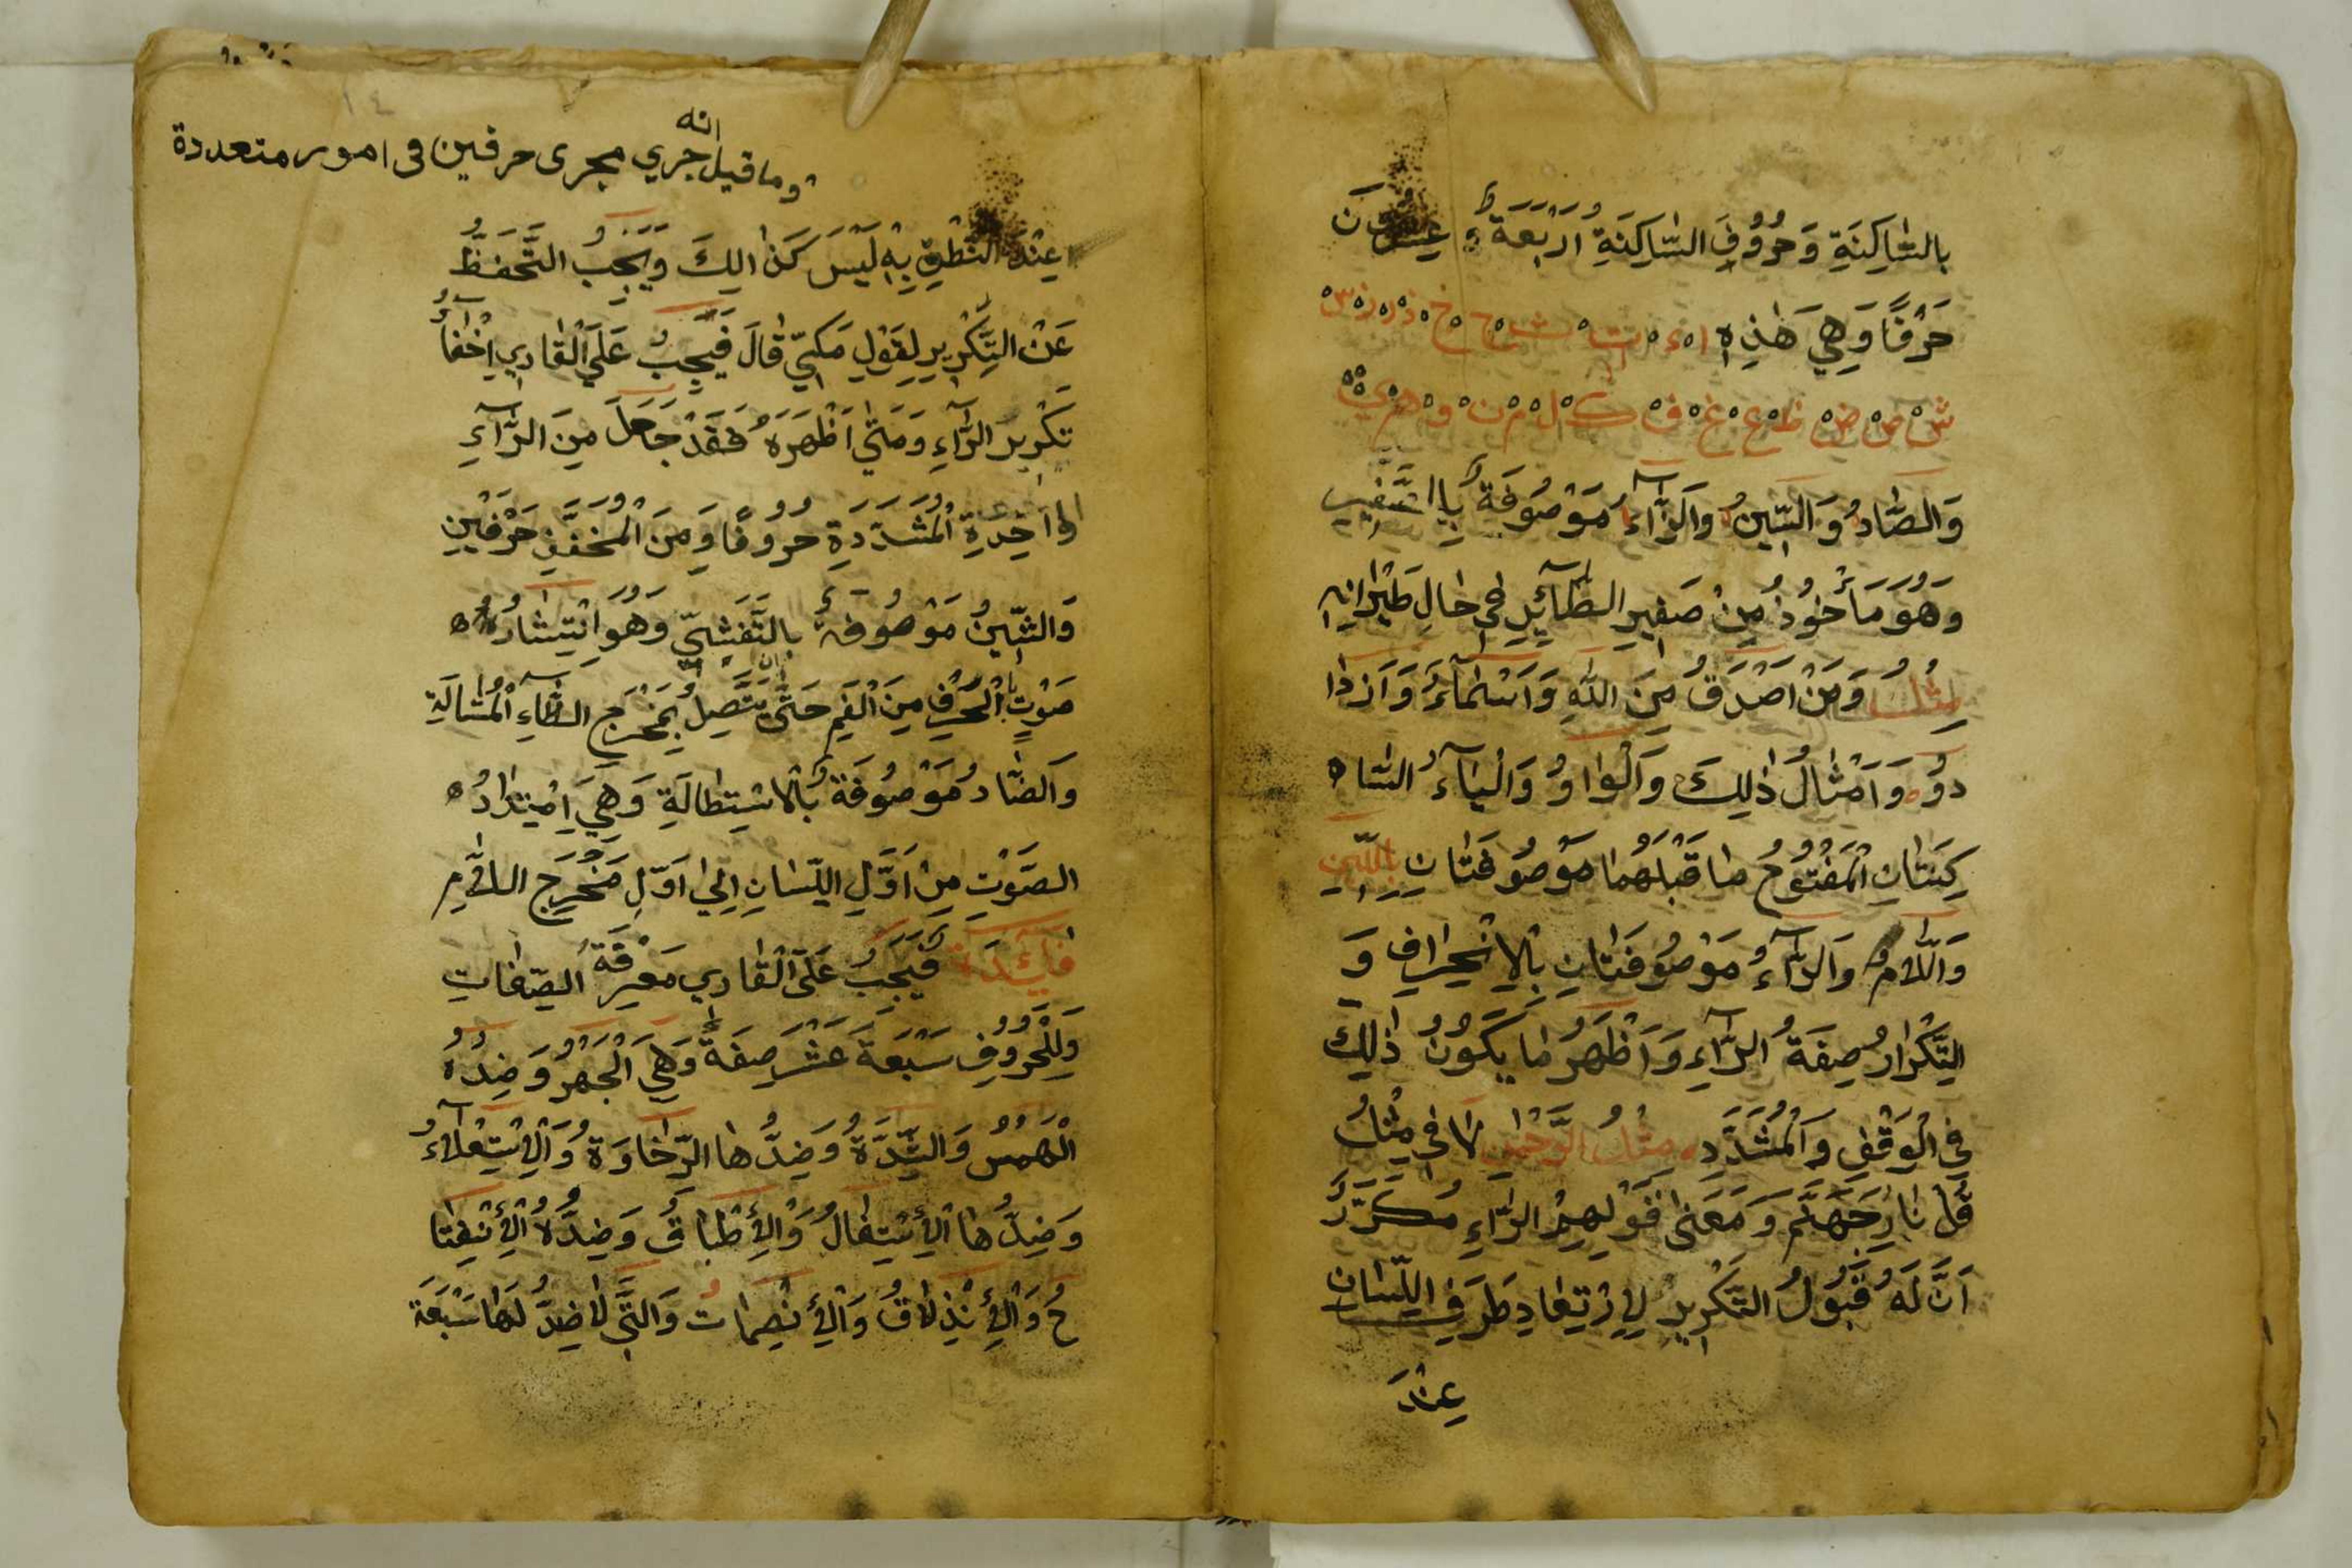 بالسَّاكِنَةِ وَحُرُوْفُ السَّاكِنَةِ اَرْبَعَةٌ وَعِشْرُوْنَ
حَرْفًا وَهِيَ هٰذِهِ ا ء ت ث ح خ ذ ر ز س
ش ص ض ظ ع غ ف ك ل م ن و ه ي
وَالصَّادُ وَالسِّيْنُ وَالزَّآءُ مَوْصُوْفَةٌ بِالصَّفِيْرِ
وَهُوَ مَاْخُوْذٌ مِنْ صَفِيْرِ الطَّآئِرِ فِيْ حَالِ طَيْرَانِهِ
مِثْلُ وَمَنْ اَصْدَقُ مِنَ اللّٰهِ وَاَسْمَآءَ وَاَزْدَا
دُوْا وَاَمْثَالُ ذٰلِكَ وَالْوَاوُ وَالْيَآءُ السَّا
كِنَتَانِ الْمَفْتُوْحُ مَا قَبْلَهُمَا مَوْصُوْفَتَانِ بِاللِّيْنِ
وَاللَّامُ وَالرَّآءُ مَوْصُوْفَتَانِ بِالْاِنْحِرَافِ وَ
التَّكْرَارُ صِفَةُ الرَّآءِ وَاَظْهَرُ مَا يَكُوْنُ ذٰلِكَ
فِي الْوَقْفِ وَالْمُشَدَّدِ مِثْلُ الرَّحْمٰنِ لَا فِيْ مِثْلُ
قُلْ نَارُ جَهَنَّمَ وَمَعْنٰى قَوْلِهِمْ الرَّاءِ مُكَرَّرٌ
اَنَّ لَهُ قَبُوْلُ التَّكْرِيْرِ لِاِرْتِعَادِ طَرَفِ اللِّسَانِ
عِنْدَ
وما قيل انه جري مجرى حرفين فى امور متعددة
عِنْدَ النُّطْقِ بِهِ لَيْسَ كَذَالِكَ وَيَجِبُ التَّحَفُّظُ
عَنِ التَّكْرِيْرِ لِقَوْلِ مَكِّيّ قَالَ فَيَجِبُ عَلَى الْقَارِي اِخْفَآءُ
تَكْرِيْرِ الرَّآءِ وَمَتٰى اَظْهَرَهُ فَقَدْ جَعَلَ مِنَ الرَّآءِ
الواحِدَةِ الْمُشَدَّدَةِ حُرُوْفًا وَمِنَ الْمُخَفَّفِ حَرْفَيْنِ
وَالشِّيْنُ مَوْصُوْفَةٌ بِالتَّفَشِّيْ وَهُوَ اِنْتِشَارُ
صَوْتِ الْحَرْفِ مِنَ الْفَمِ حَتّٰى تَتَّصِلُ بِمَخْرَجِ الظَّآءِ الْمُشَالَةِ
وَالضَّادُ مَوْصُوْفَةٌ بِالْاِسْتِطَالَةِ وَهِيَ اِمْتِدَادُ
الصَّوْتِ مِنْ اَوَّلِ اللِّسَانِ اِلٰى اَوَّلِ مَخْرَجِ اللَّامِ
فَائِدَة فَيَجِبُ عَلَى الْقَارِي مَعْرِفَةُ الصِّفَاتِ
وَلِلْحُرُوْفِ سَبْعَةَ عَشَرَ صِفَةً وَهِيَ الْجَهْرُ وَضِدُّهُ
الْهَمْسُ وَالشِّدَّةُ وَضِدُّهَا الرِّخَاوَةُ وَالْاِسْتِعْلَآءُ
وَضِدُّهَا الْاِسْتِفَالُ وَالْاِطْبَاقُ وَضِدُّهُ الْاِنْفِتَا
حُ وَالْاِنْذِلَاقُ وَالْاِنْصِمَاتُ وَالَّتِيْ لَاضِدَّ لَهَا سَبْعَةَ